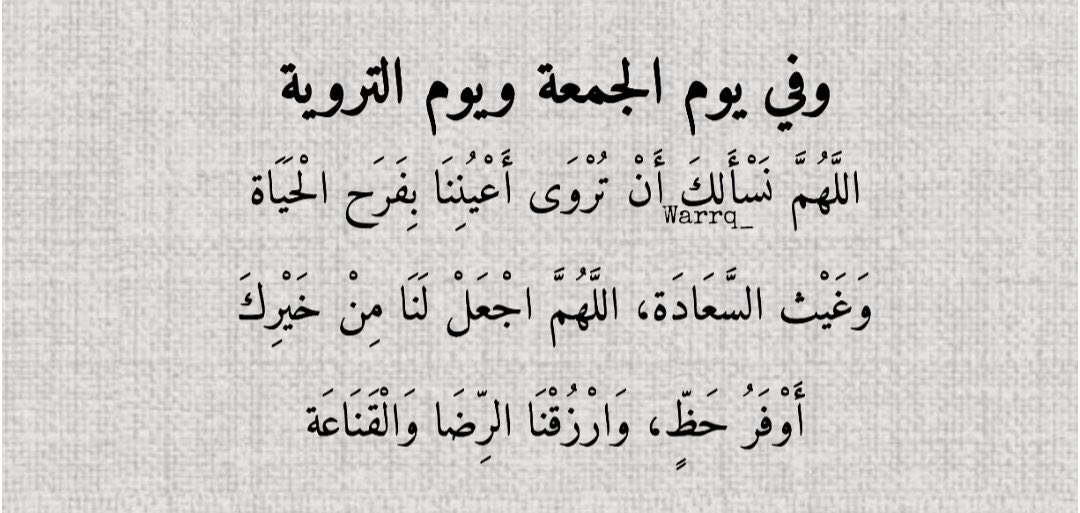 وفي يوم الجمعة ويوم التروية
اللَّهُمَّ نَسْأَلكَ أَنْ تُرْوَى أَعْيُنِنَا بِفَرَح الْحَيَاة
Warrq_
وَغَيْث السَّعَادَة، اللَّهُمَّ اجْعَلْ لَنَا مِنْ خَيْرِكَ
أَوْفَرُ حَظٍّ، وَارْزُقْنَا الرِّضَا وَالْقَنَاعَة